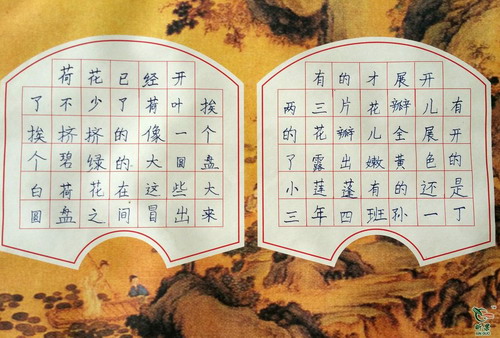 荷花已经开
了不少了荷叶挨
挨挤挤的像一个
个碧绿的大圆盘
白荷花在这些大
圆盘之间冒出来
有的才展开
两三片花瓣儿有
的花瓣儿全展开
了露出嫩黄色的
小莲蓬有的还是
三年四班孙一丁